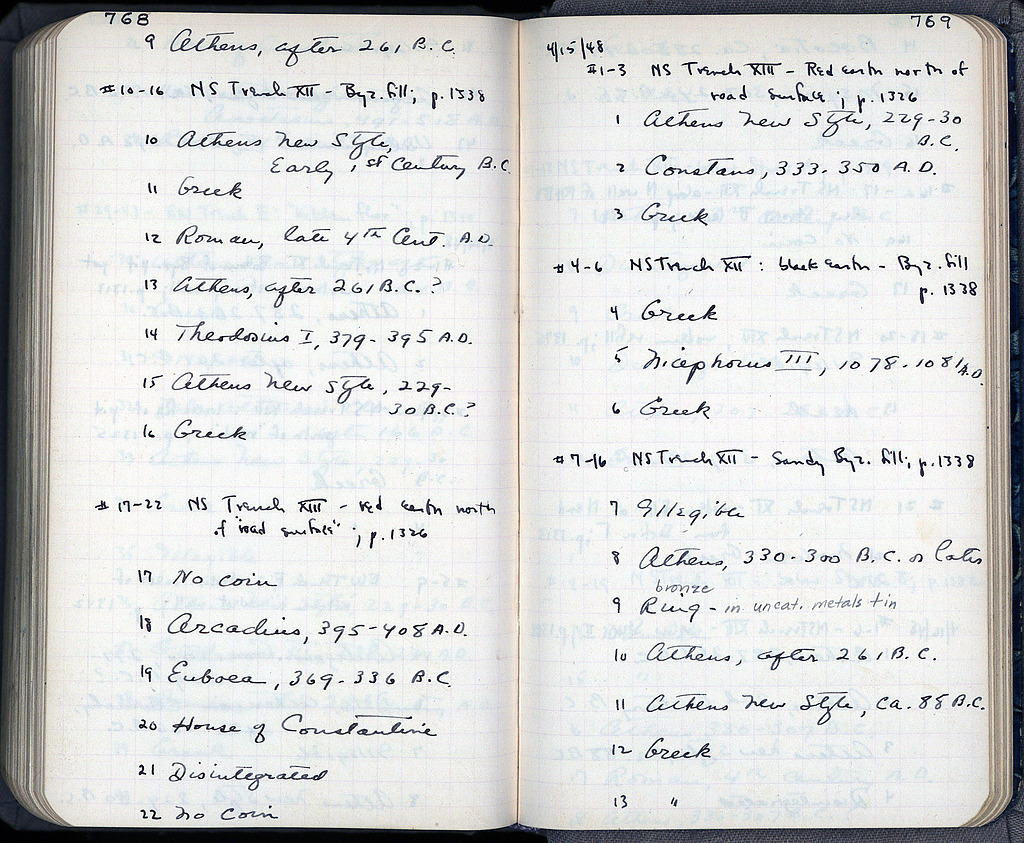 768
9 Athens, after 261 B.C.
#10-16 NS Trench XII - Byz. fill; p. 1338
10 Athens New Style,
Early 1st Century B.C.
11 Greek
12 Roman, late 4th Cent. A.D.
13 Athens, after 261 B.C.?
14 Theodosius I, 379-395 A.D.
15 Athens New Style, 229-
30 B.C.?
16 Greek
#17-22 NS Trench XIII - red earth north
of "road surface"; p. 1326
17 No coin
18 Arcadius, 395-408 A.D.
19 Euboea, 369-336 B.C.
20 House of Constantine
21 Disintegrated
22 No coin
769
4/15/48
#1-3 NS Trench XIII - Red earth north of
road surface; p. 1326
1 Athens New Style, 229-30
B.C.
2 Constans, 333-350 A.D.
3 Greek
#4-6 NS Trench XII: black earth - Byz. fill
p. 1338
4 Greek
5 Nicephorus III, 1078-1081 A.D.
6 Greek
#7-16 NS Trench XII - Sandy Byz. fill; p. 1338
7 Illegible
8 Athens, 330-300 B.C. or later
bronze
9 Ring - in uncat. metals tin
10 Athens, after 261 B.C.
11 Athens New Style, ca. 88 B.C.
12 Greek
13 "